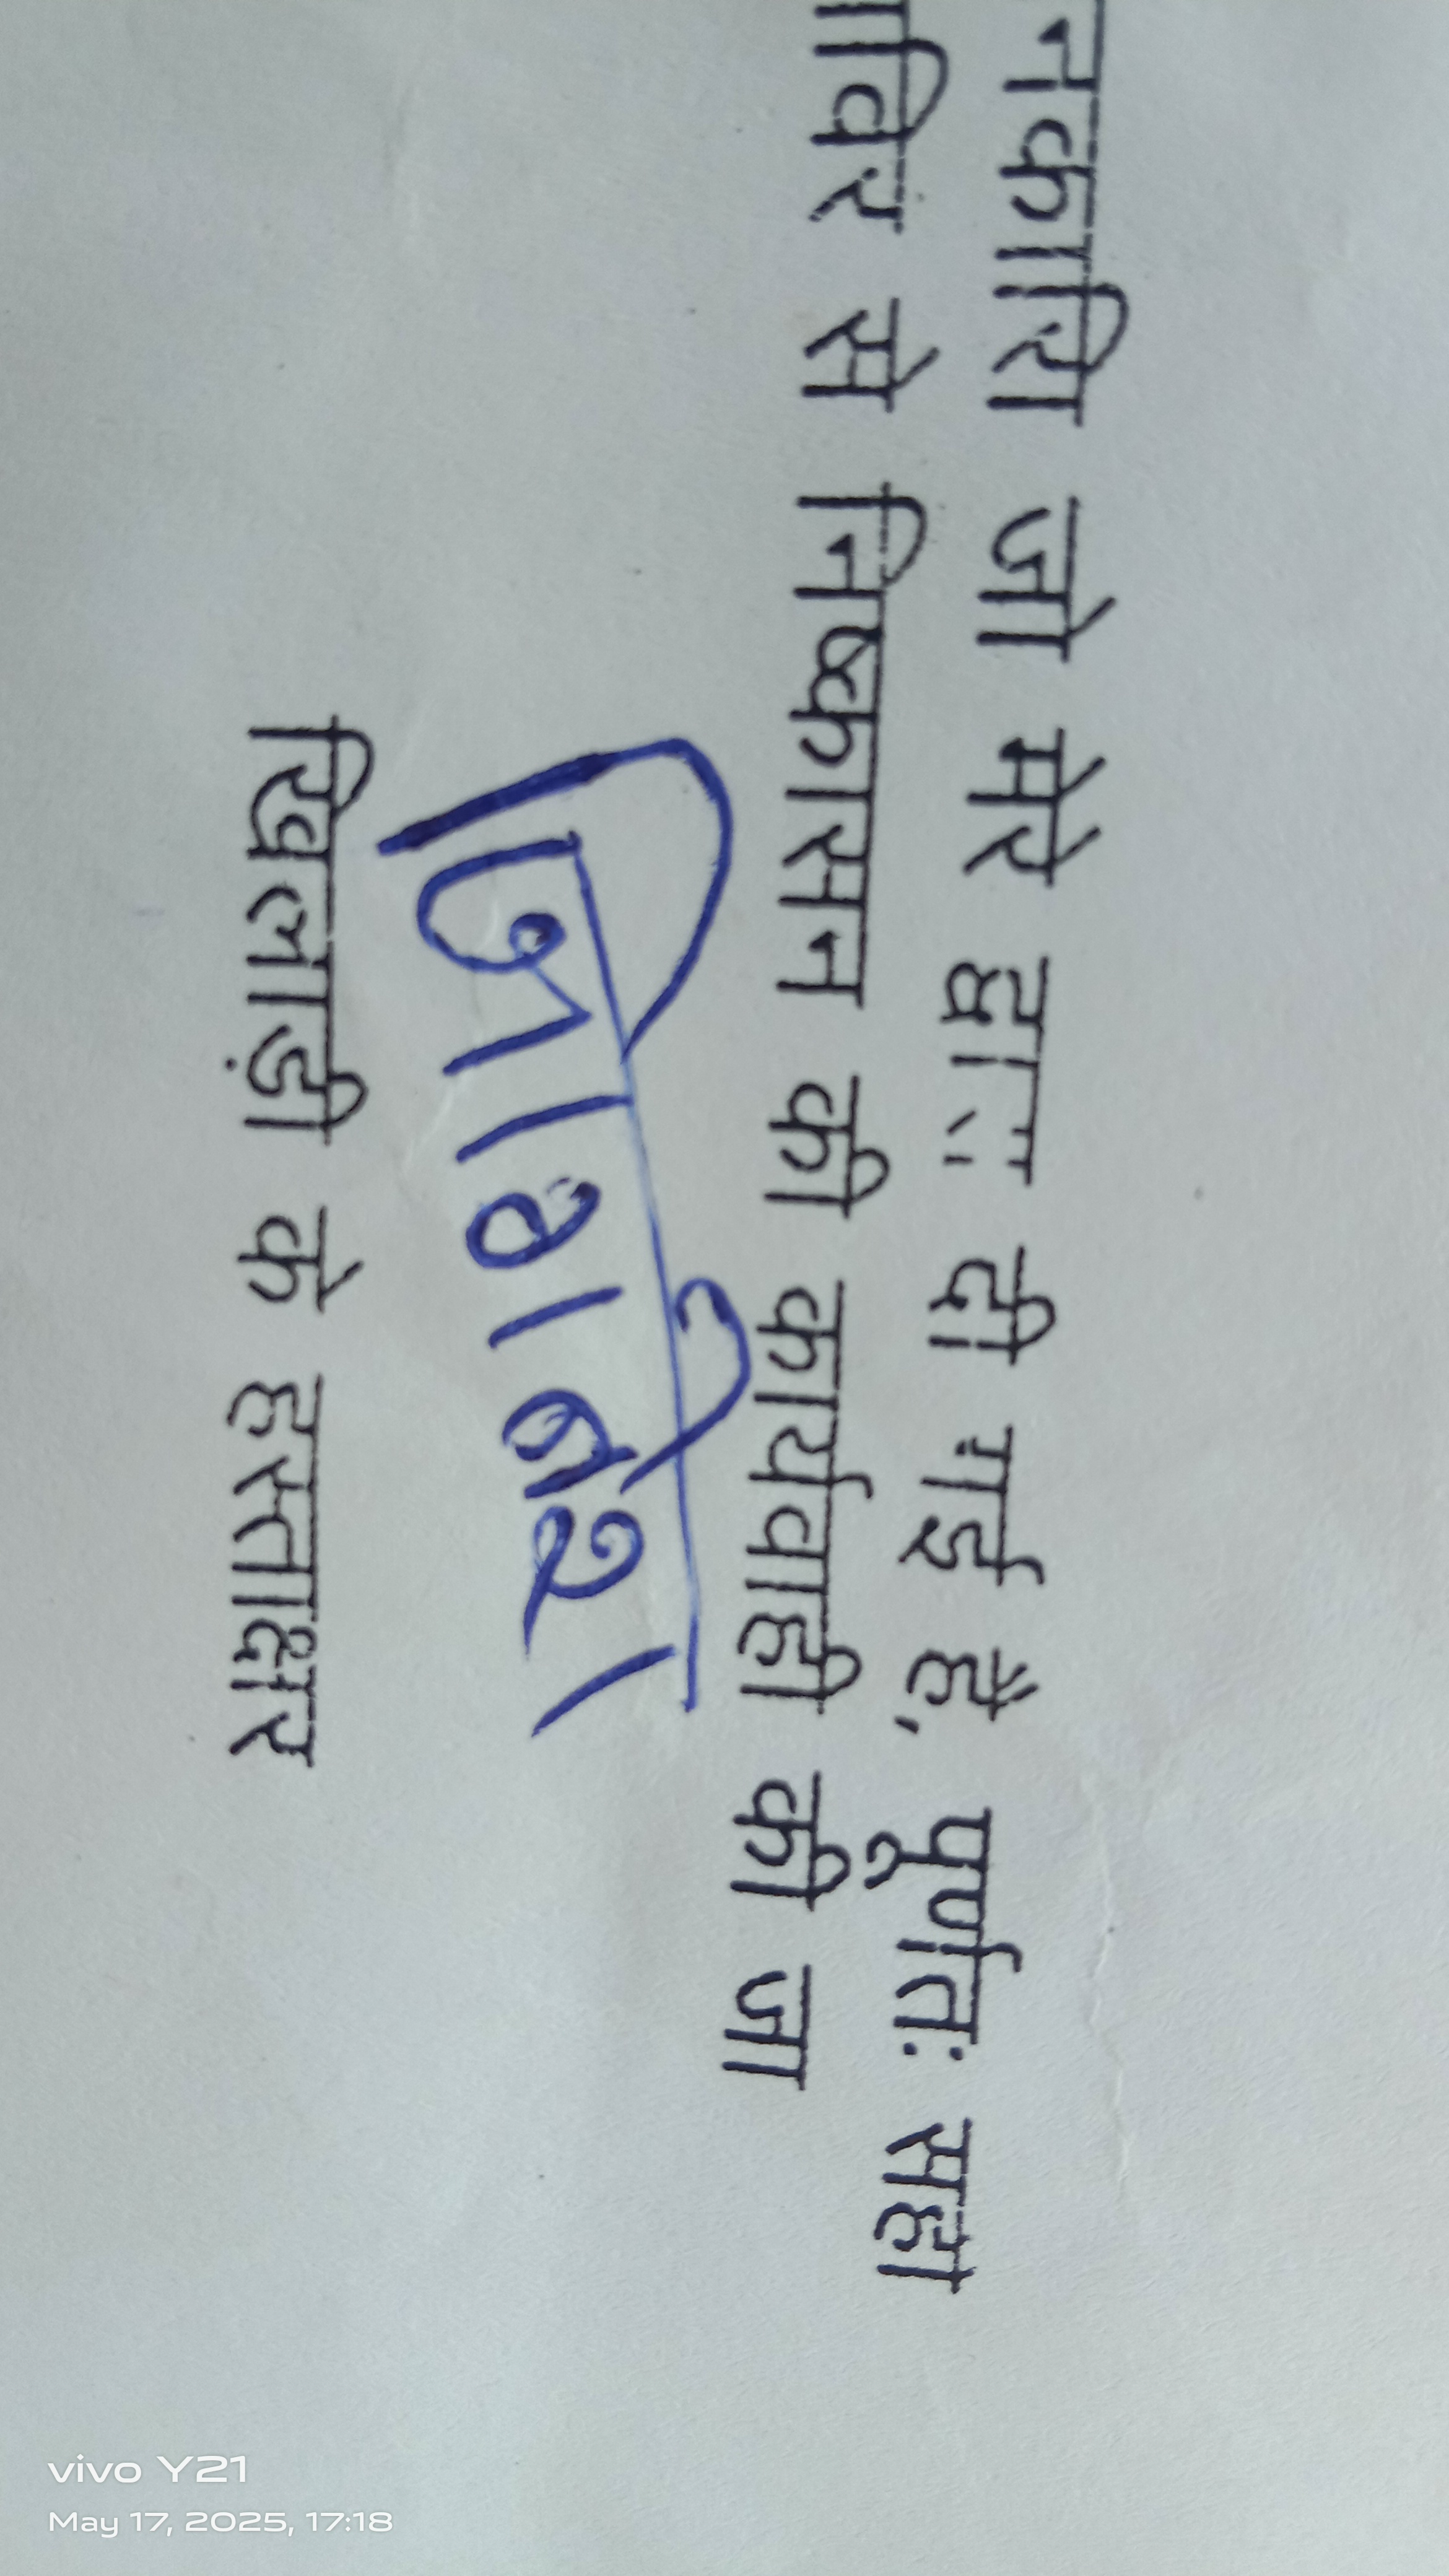 नकारी जो मेरे द्वारा दी गई है, पूर्णतः सही
विर से निष्कासन की कार्यवाही की जा
खिलाड़ी के हस्ताक्षर
vivo Y21
May 17, 2025, 17:18